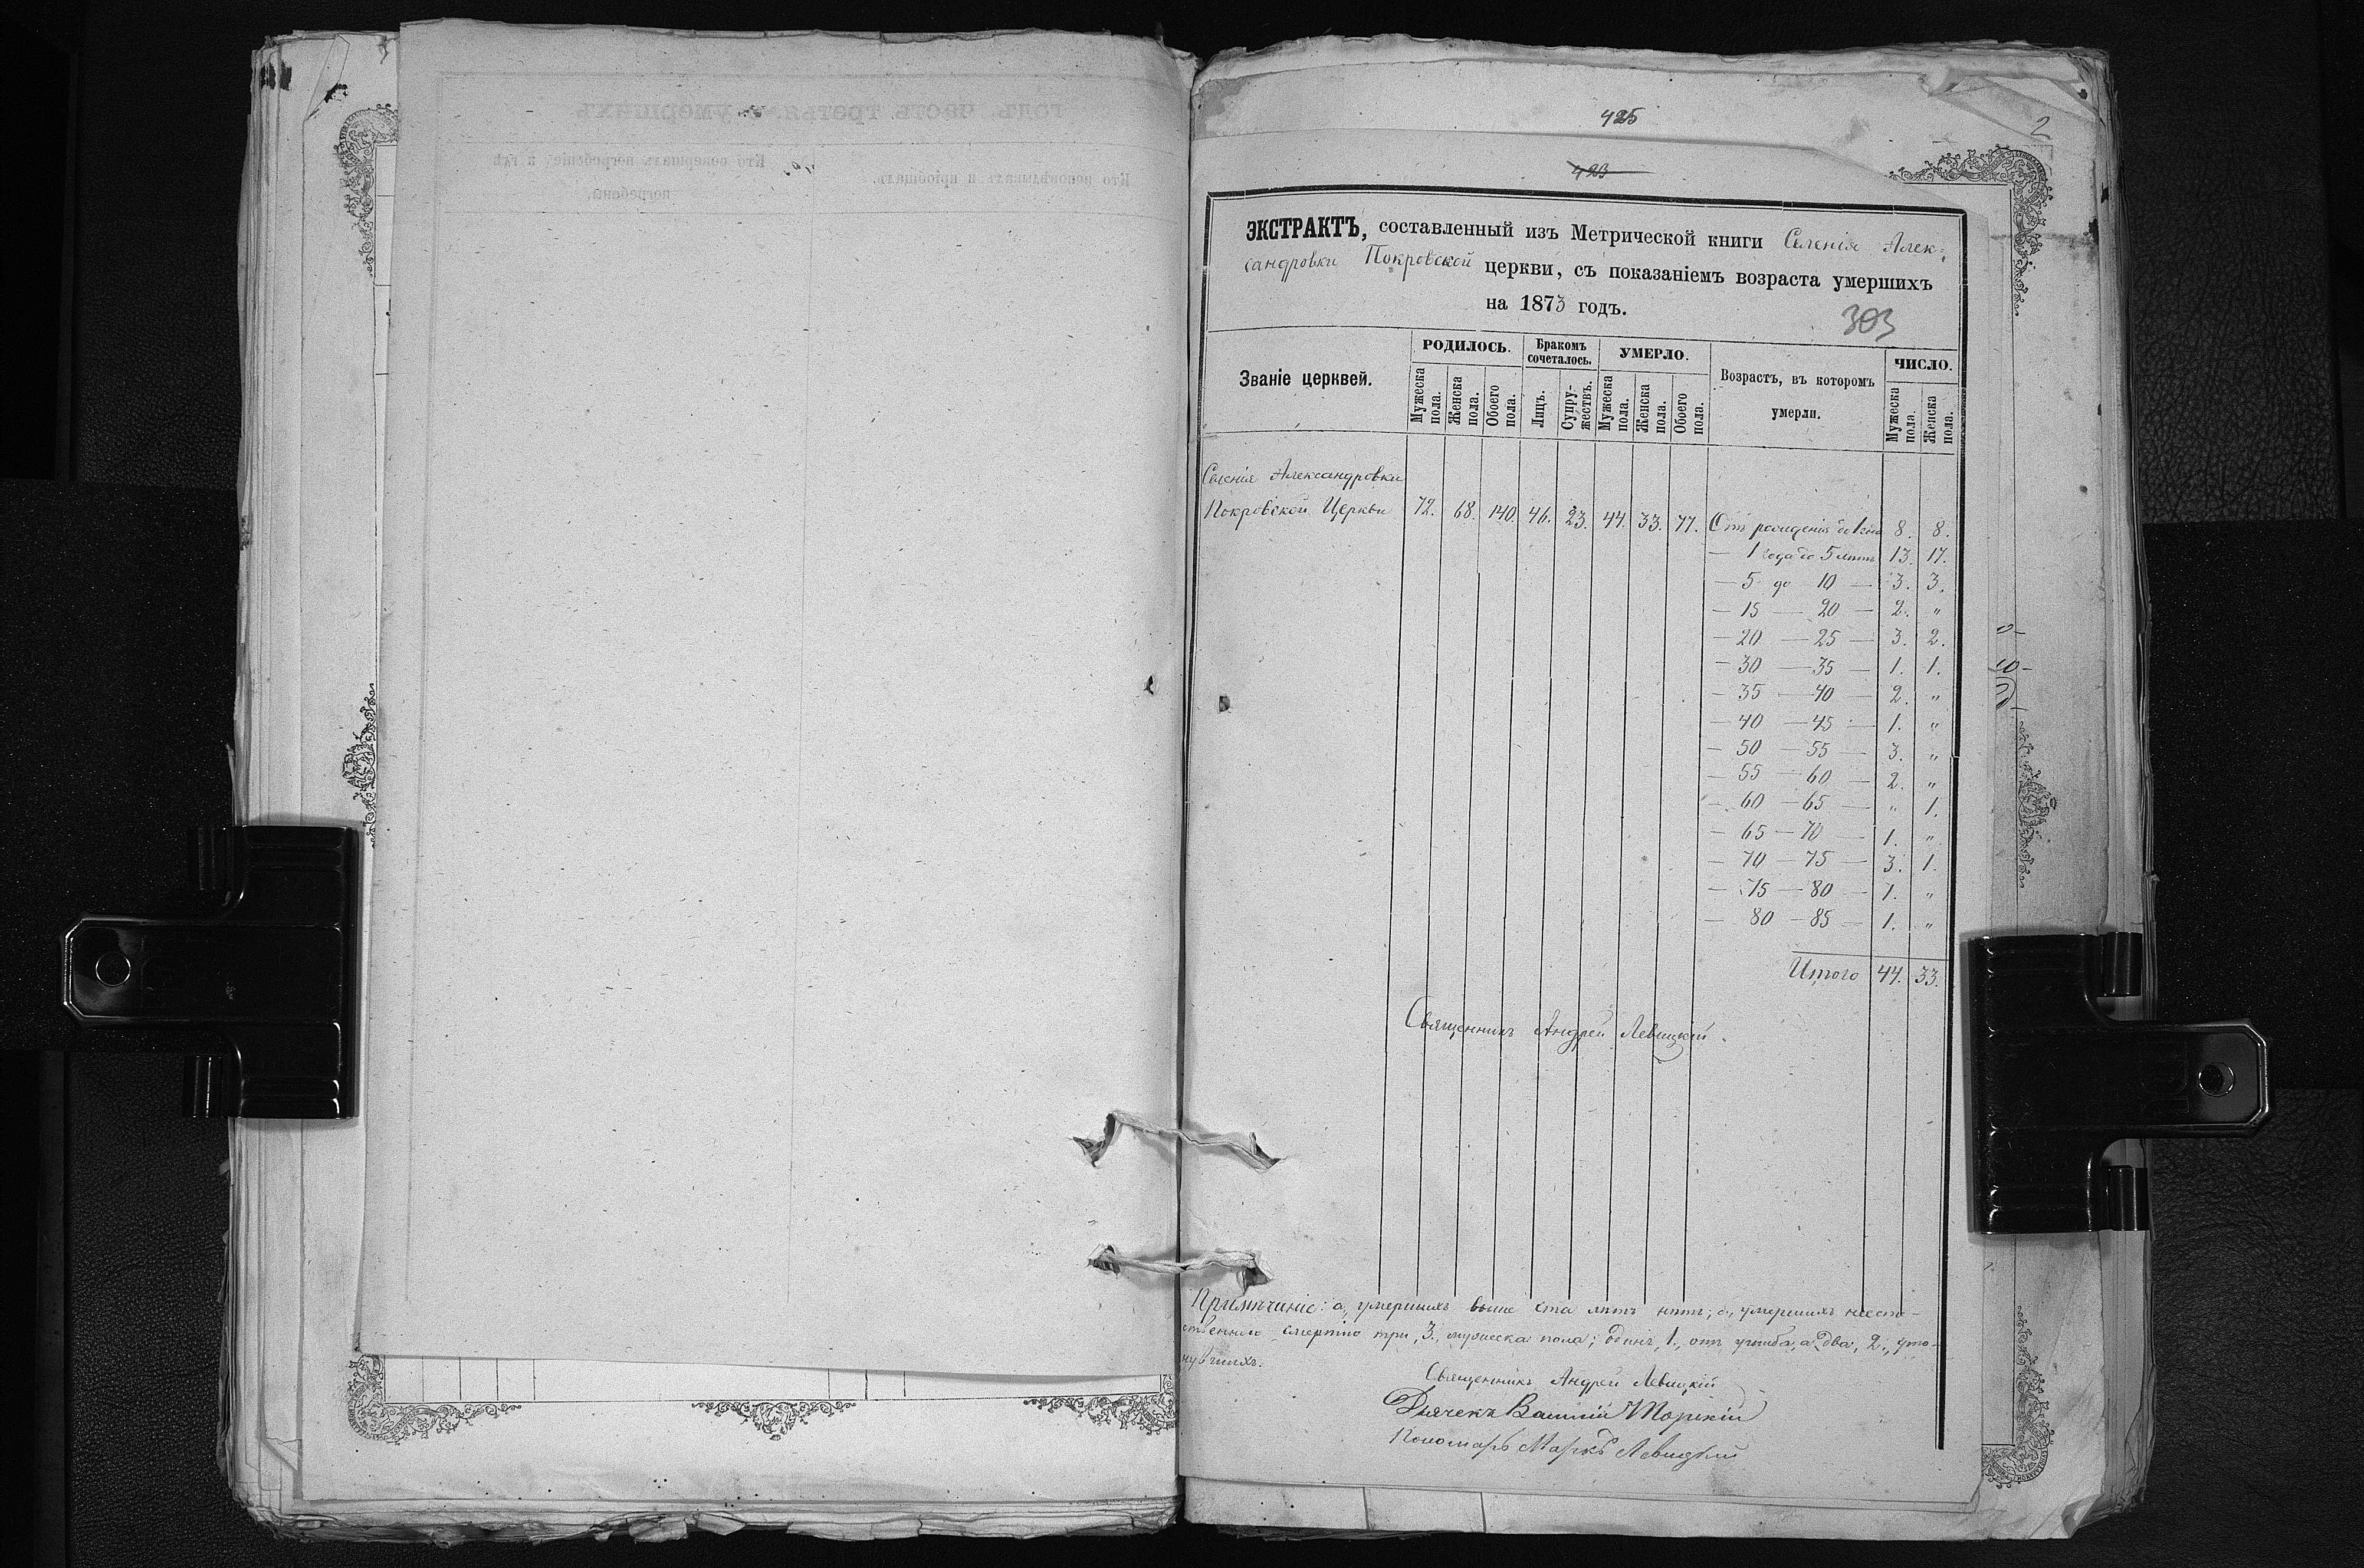 425
2
423
ЭКСТРАКТЪ, составленный изъ Метрической книги Селенія Алек-
сандровки Покровской церкви, съ показаніемъ возраста умершихъ
на 1873 годъ.
303
Званіе церквей.
РОДИЛОСЬ.
Бракомъ сочеталось.
УМЕРЛО.
Возрастъ, въ которомъ умерли.
ЧИСЛО.
Мужеска пола.
Женска пола.
Обоего пола.
Лицъ.
Супружествъ.
Мужеска пола.
Женска пола.
Обоего пола.
Мужеска пола.
Женска пола.
Селенія Александровки
Покровской Церкви 72. 68. 140. 46. 23. 44. 33. 77. От рожденія до 1 года 8. 8.
— 1 года до 5 лѣтъ 13. 17.
— 5 до 10 — 3. 3.
— 15 — 20 — 2. "
— 20 — 25 — 3. 2.
— 30 — 35 — 1. 1.
— 35 — 40 — 2. "
— 40 — 45 — 1. "
— 50 — 55 — 3. "
— 55 — 60 — 2. "
— 60 — 65 — " 1.
— 65 — 70 — 1. "
— 70 — 75 — 3. 1.
— 75 — 80 — 1. "
— 80 — 85 — 1. "
Итого 44. 33.
Священникъ Андрей Левицкій.
Примѣчаніе: а, умершихъ выше ста лѣтъ нѣтъ; б, умершихъ неесте-
ственною смертію три, 3, мужеска пола; одинъ, 1, отъ ушиба, а два, 2, уто-
нувшихъ.
Священникъ Андрей Левицкій
Дьячекъ Торскій
Пономарь Маркъ Левицкій
годъ, часть третья, о умершихъ
Кто исповѣдывалъ и пріобщалъ.
Кто совершалъ погребеніе, и гдѣ
погребены.